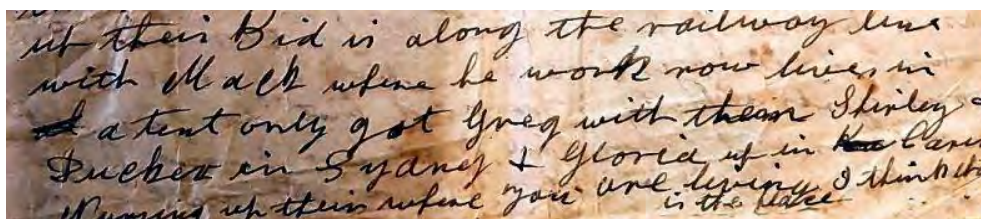 up their Bid is along the railway line
with Mack where he work now lives in
a tent only got Greg with them Shirley &
in Sydney & Gloria up in
Nursing up their where you are living I think
is the place